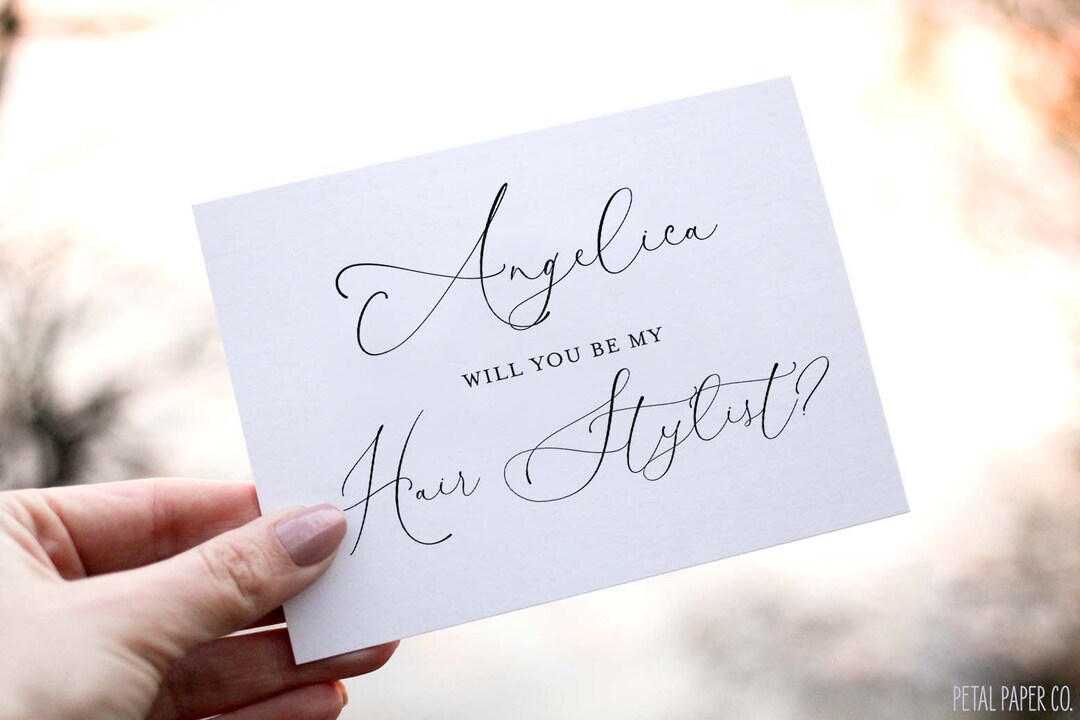 Angelica
WILL YOU BE MY
Hair Stylist?
PETAL PAPER CO.